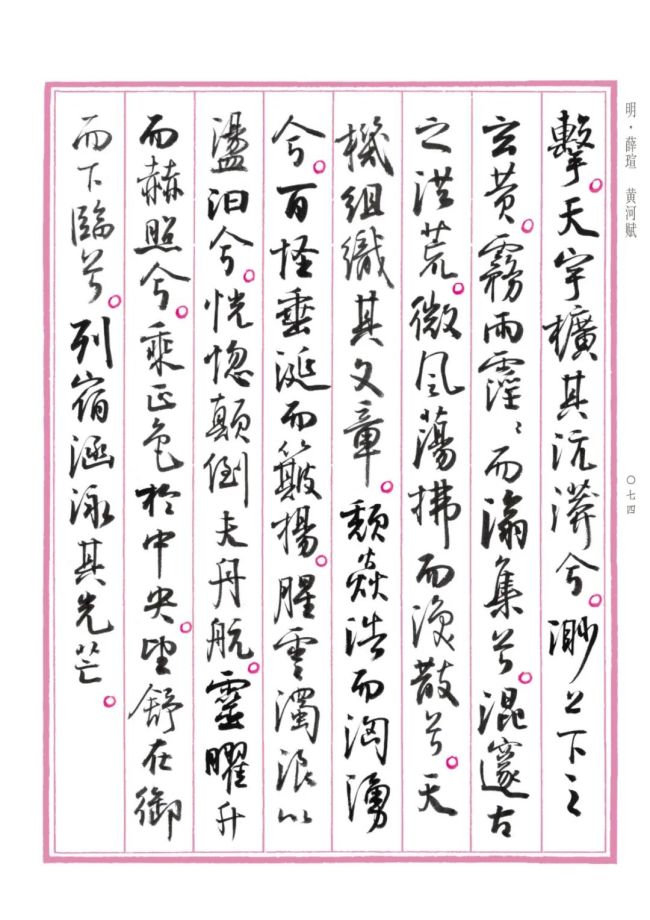 明·薛瑄 黄河赋
擊。天宇擴其沆漭兮。渺上下之
玄黄。霧雨霪霪而瀜集兮。混邃古
之洪荒。微風蕩拂而渙散兮。天
機組織其文章。頹焱浩而洶湧
兮。百怪垂涎而簸揚。腥雲濁浪以
盪汩兮。恍惚顛倒夫舟航。靈曜升
而赫照兮。乘正色於中央。望舒在御
而下臨兮。列宿涵泳其光芒。
〇七四